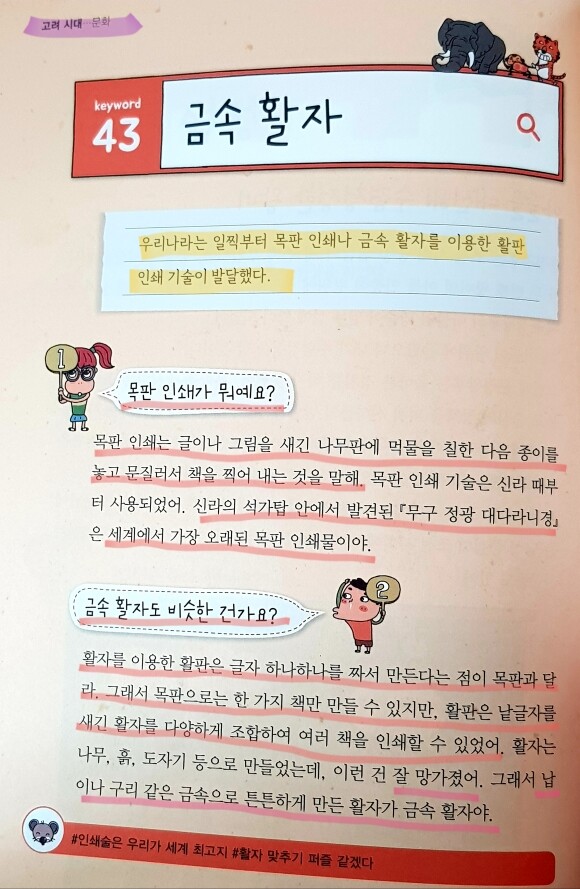 고려 시대…문화
keyword
43
금속 활자
우리나라는 일찍부터 목판 인쇄나 금속 활자를 이용한 활판
인쇄 기술이 발달했다.
1
목판 인쇄가 뭐예요?
목판 인쇄는 글이나 그림을 새긴 나무판에 먹물을 칠한 다음 종이를
놓고 문질러서 책을 찍어 내는 것을 말해. 목판 인쇄 기술은 신라 때부
터 사용되었어. 신라의 석가탑 안에서 발견된 『무구 정광 대다라니경』
은 세계에서 가장 오래된 목판 인쇄물이야.
금속 활자도 비슷한 건가요?
2
활자를 이용한 활판은 글자 하나하나를 짜서 만든다는 점이 목판과 달
라. 그래서 목판으로는 한 가지 책만 만들 수 있지만, 활판은 낱글자를
새긴 활자를 다양하게 조합하여 여러 책을 인쇄할 수 있었어. 활자는
나무, 흙, 도자기 등으로 만들었는데, 이런 건 잘 망가졌어. 그래서 납
이나 구리 같은 금속으로 튼튼하게 만든 활자가 금속 활자야.
#인쇄술은 우리가 세계 최고지 #활자 맞추기 퍼즐 같겠다